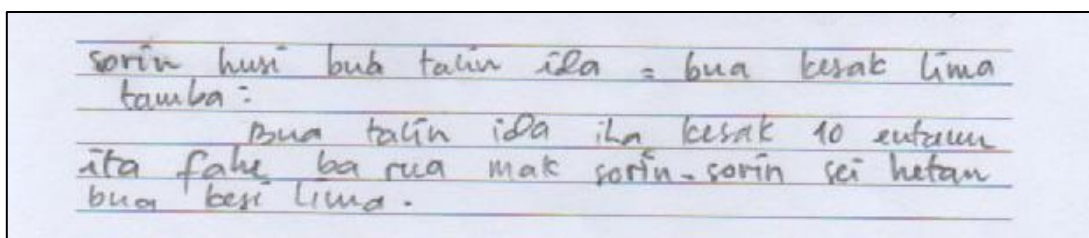 sorin husi bua talin ida = bua kesak lima
tamba :
Bua talin ida iha kesak 10 entaun
ita fahe ba rua mak sorin-sorin sei hetan
bua besi lima.